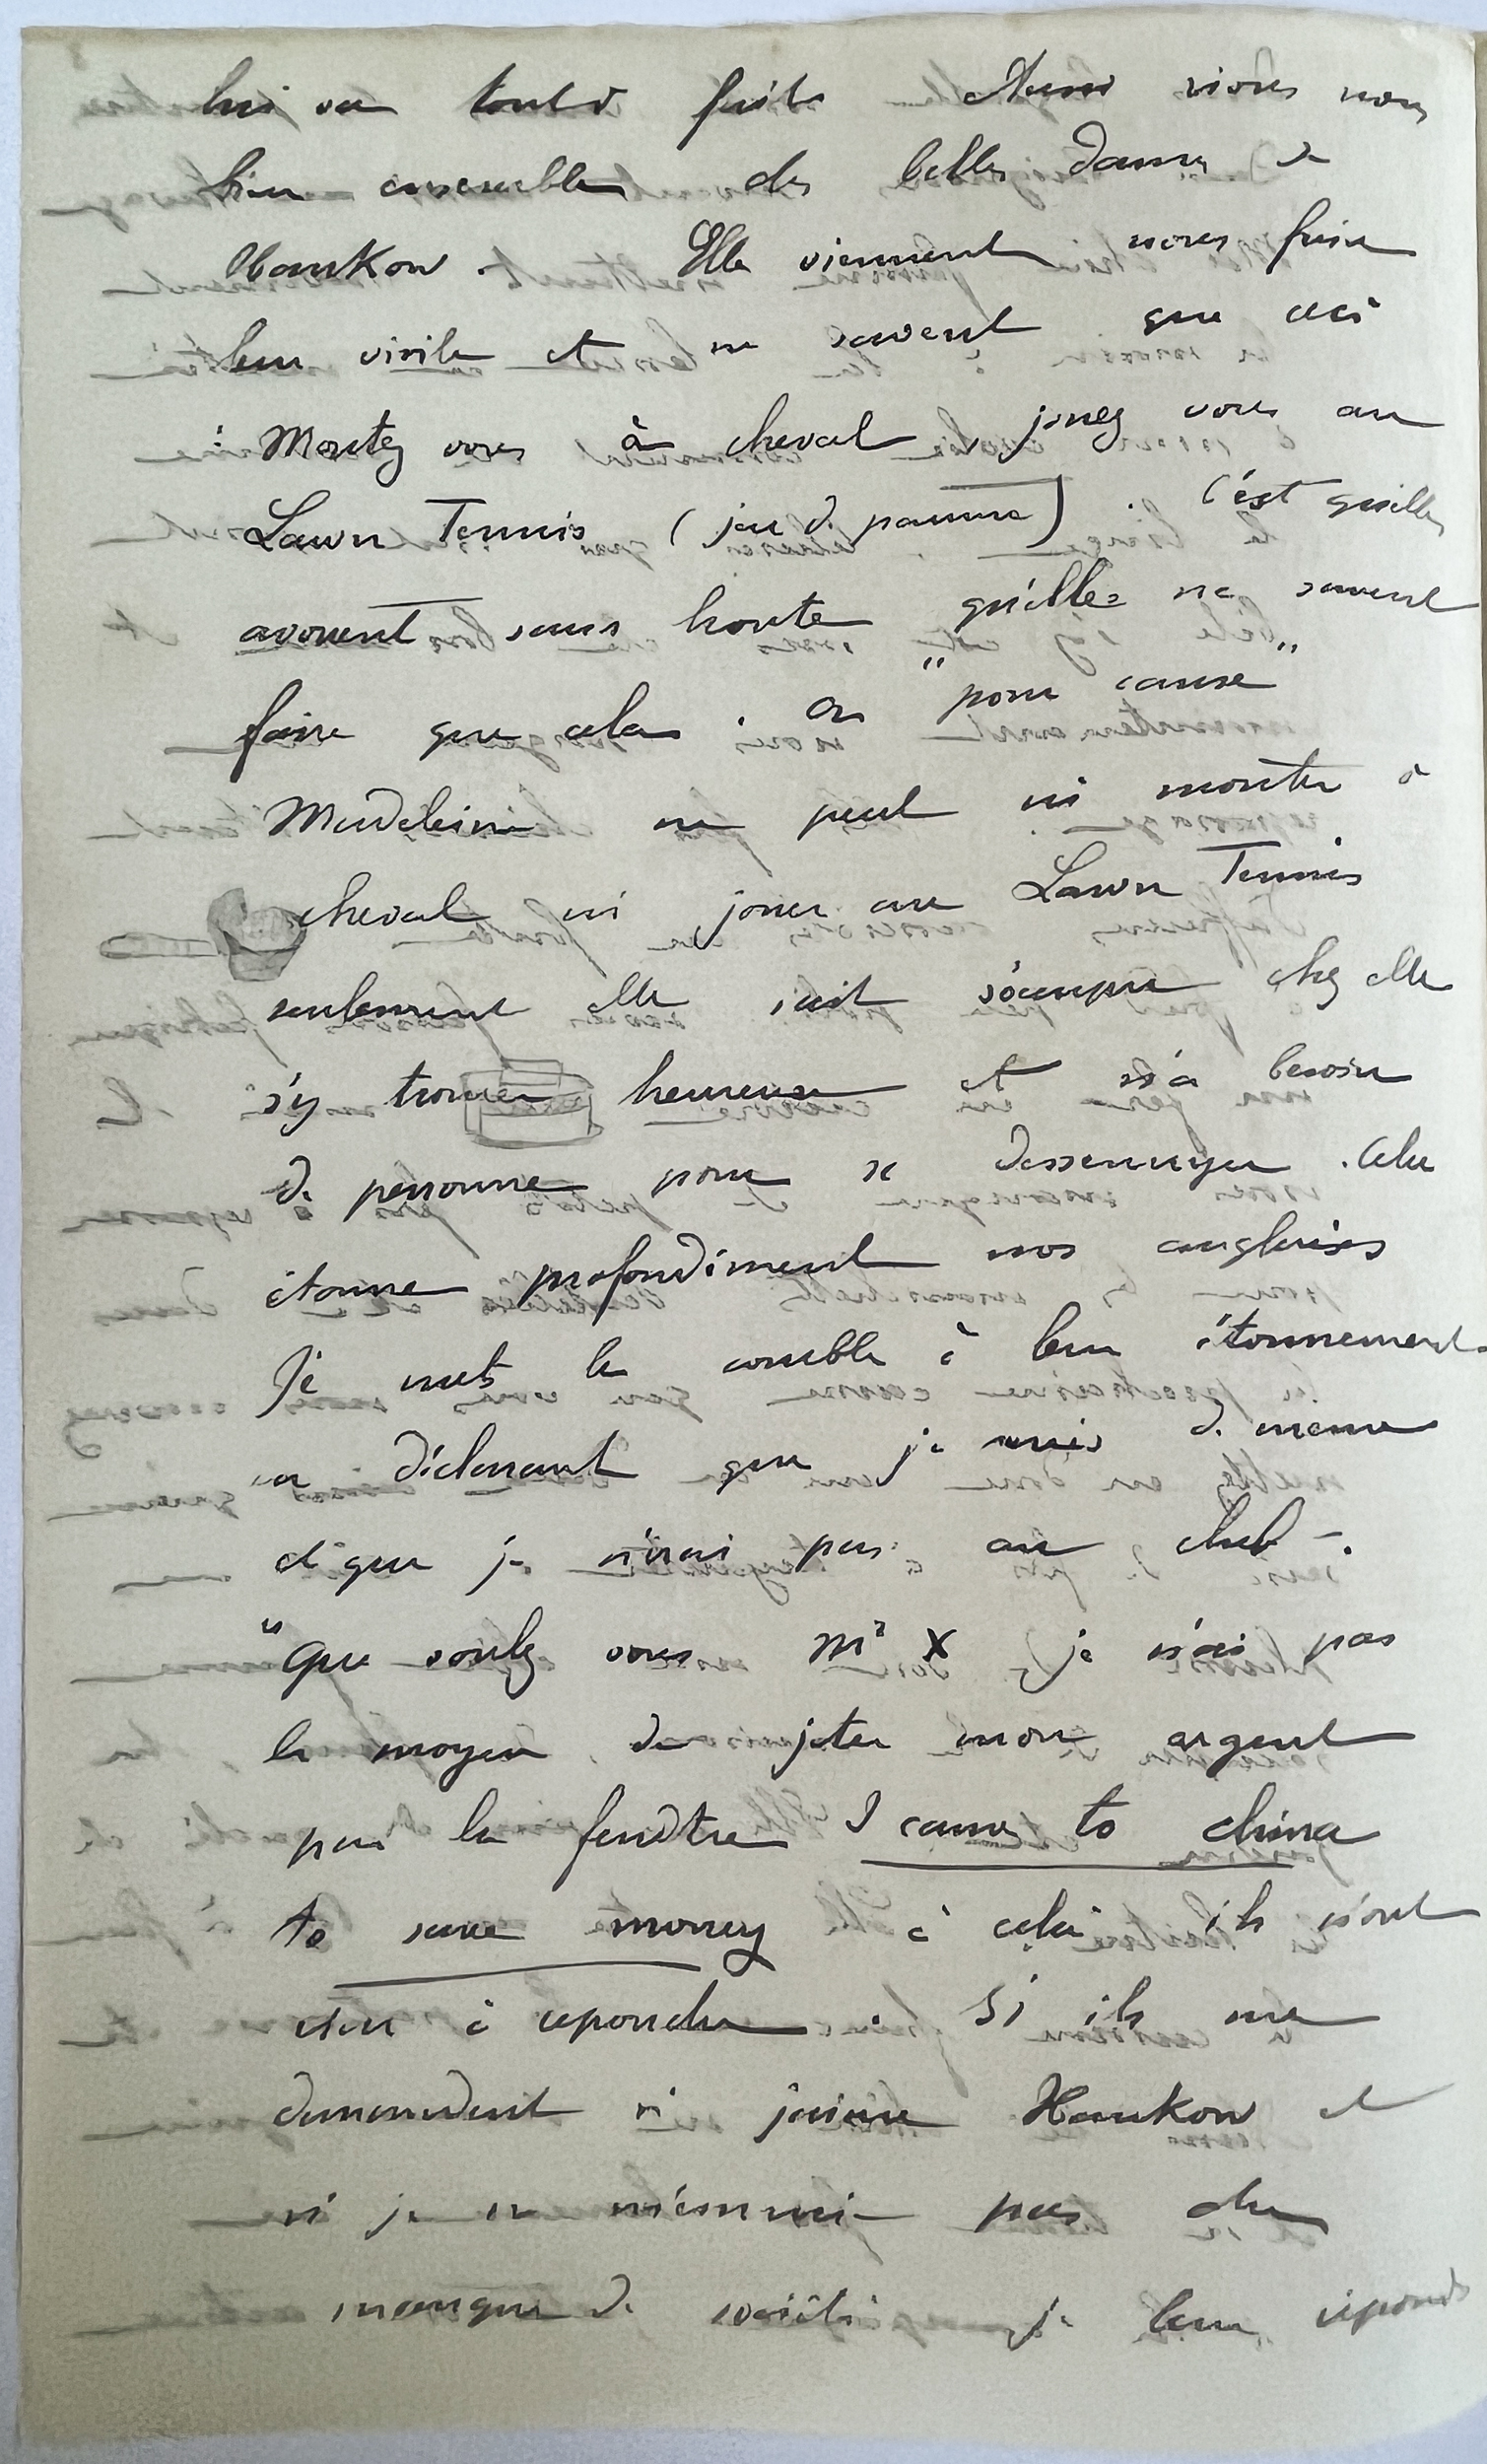 lui va toute faite. Aussi rions nous
bien ensemble des belles dames de
Hankow. Elles viennent nous faire
leur visite et ne savent que ceci
: Montez vous à cheval, jouez vous au
Lawn Tennis (jeu de paume). C'est qu'elles
avouent sans honte qu'elles ne savent
faire que cela; or "pour cause"
Madeleine ne peut ni monter à
cheval ni jouer au Lawn Tennis
seulement elle sait s'occuper chez elle
s'y trouver heureuse et n'a besoin
de personne pour se desennuyer. Cela
étonne profondément nos anglaises
Je mets le comble à leur étonnement
en déclarant que je suis de même
et que je n'irai pas au club -.
"Que voulez vous Mr X je n'ai pas
le moyen de jeter mon argent
par la fenêtre I came to china
to save money à cela ils n'ont
rien à repondre. Si ils me
demandent si j'aime Hankow et
si je ne m'ennuie pas du
manque de société je leur réponds